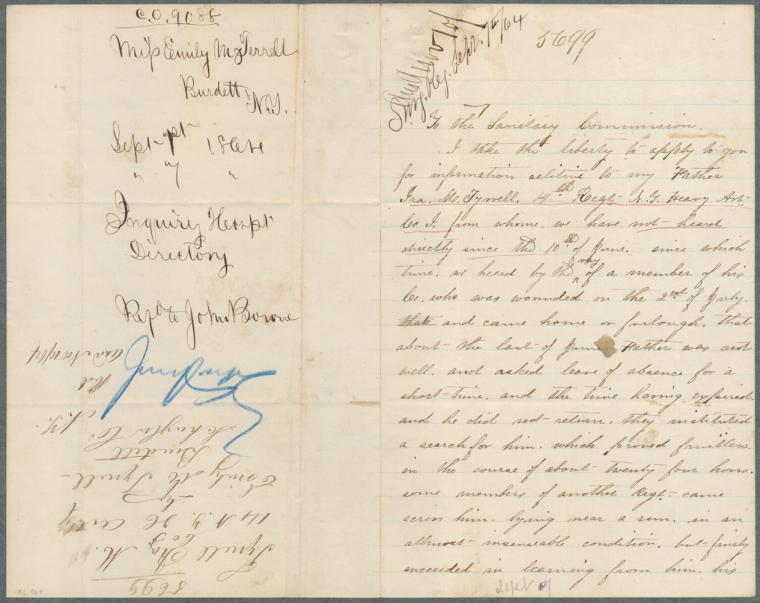 C.O. 9088
Miss Emily McTerrell
Burdett
N.Y.
Sept 1st 1864
" 7 "
Inquiry Hospt
Directory
Repd to John Bowne
Schuyler Co.
Burdett
Emily Mc Tyrell
By
14 N.Y. H. Arty
Co I
Tyrell Ira M.
5699
Sept. 7th/64
5699
To the Sanitary Commission.
I take the liberty to apply to you
for information relitive to my Father
Ira. Mc. Tyrrell. 14th Regt- N.Y. Heavy Art-
Co. I. from whome. we have not heard
directly since the 10th of June. since which
time. we heard by the way of a member of his
Co. who was wounded on the 2nd of July.
that and came home on furlough. that
about the last of June Father was not
well. and asked leave of absence for a
short time. and the time having expired.
and he did not return. they instituted
a search for him. which proved fruitless.
in the course of about twenty four hours.
some members of another Regt- came
across him. lying near a run. in an
allmost insenseable condition. but finaly
succeeded in learning from him. his
Sept 7